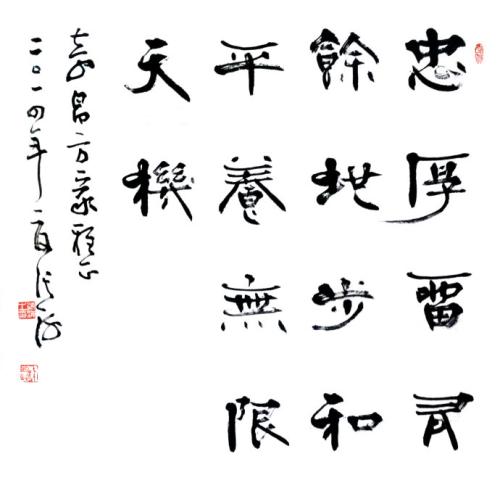 忠厚留有
餘地步和
平養無限
天機
昌方家雅正
二〇一四年